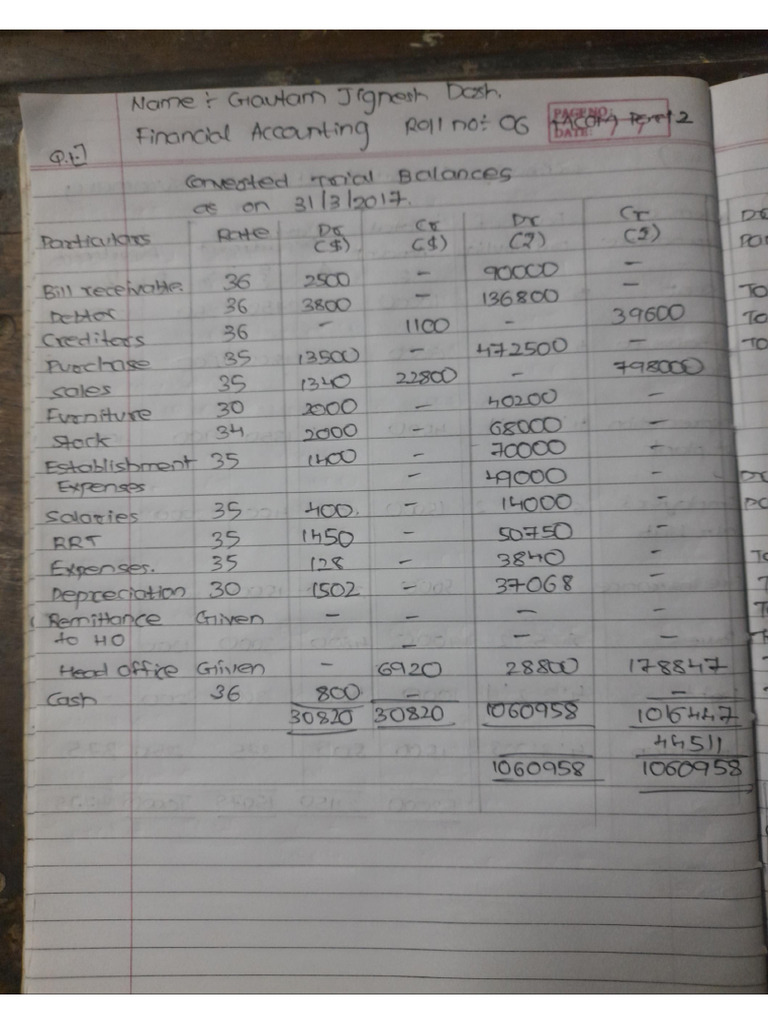 Name : Gautam Jignesh Dosh.
Financial Accounting Roll no: 06
PAGE NO:
DATE:
Q.1]
Converted Trial Balances
as on 31/3/2017.
Particulars Rate Dr ($) Cr ($) Dr (₹) Cr (₹)
Bill receivable 36 2500 - 90000 -
Debtor 36 3800 - 136800 -
Creditors 36 - 1100 - 39600
Purchase 35 13500 - 472500 -
Sales 35 1340 22800 - 798000
Furniture 30 2000 - 40200 -
Stock 34 2000 - 68000 -
Establishment 35 1400 - 70000 -
Expenses - 49000 -
Salaries 35 400. - 14000 -
RRT 35 1450 - 50750 -
Expenses. 35 128 - 3840 -
Depreciation 30 1502 - 37068 -
Remittance Given - - - -
to HO - - -
Head office Given - 6920 28800 178847
Cash 36 800 - -
30820 30820 1060958 1016447
44511
1060958 1060958